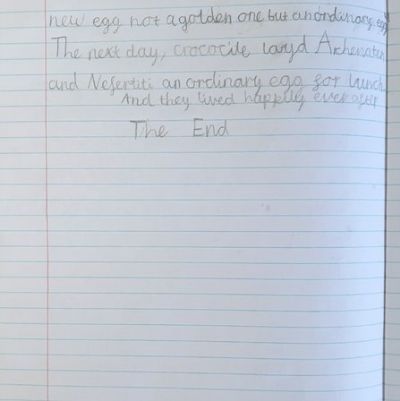 new egg not a golden one but an ordinary egg
The next day, crococile layd Arhenaten
and Nefertiti an ordinary egg for lunch
And they lived happily ever after
The End